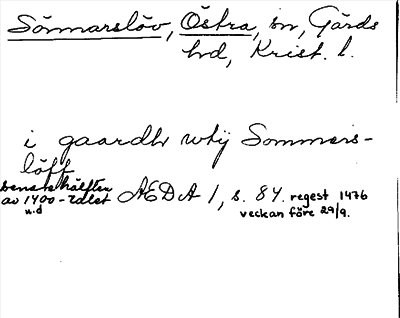 Sönnarslöv, Östra, sn, Gärds
hd, Krist. l.
i gaardh wtij Sommers-
löff
senare hälften
av 1400-talet
u.d
AEDA 1, s. 84. regest 1476
veckan före 29/9.